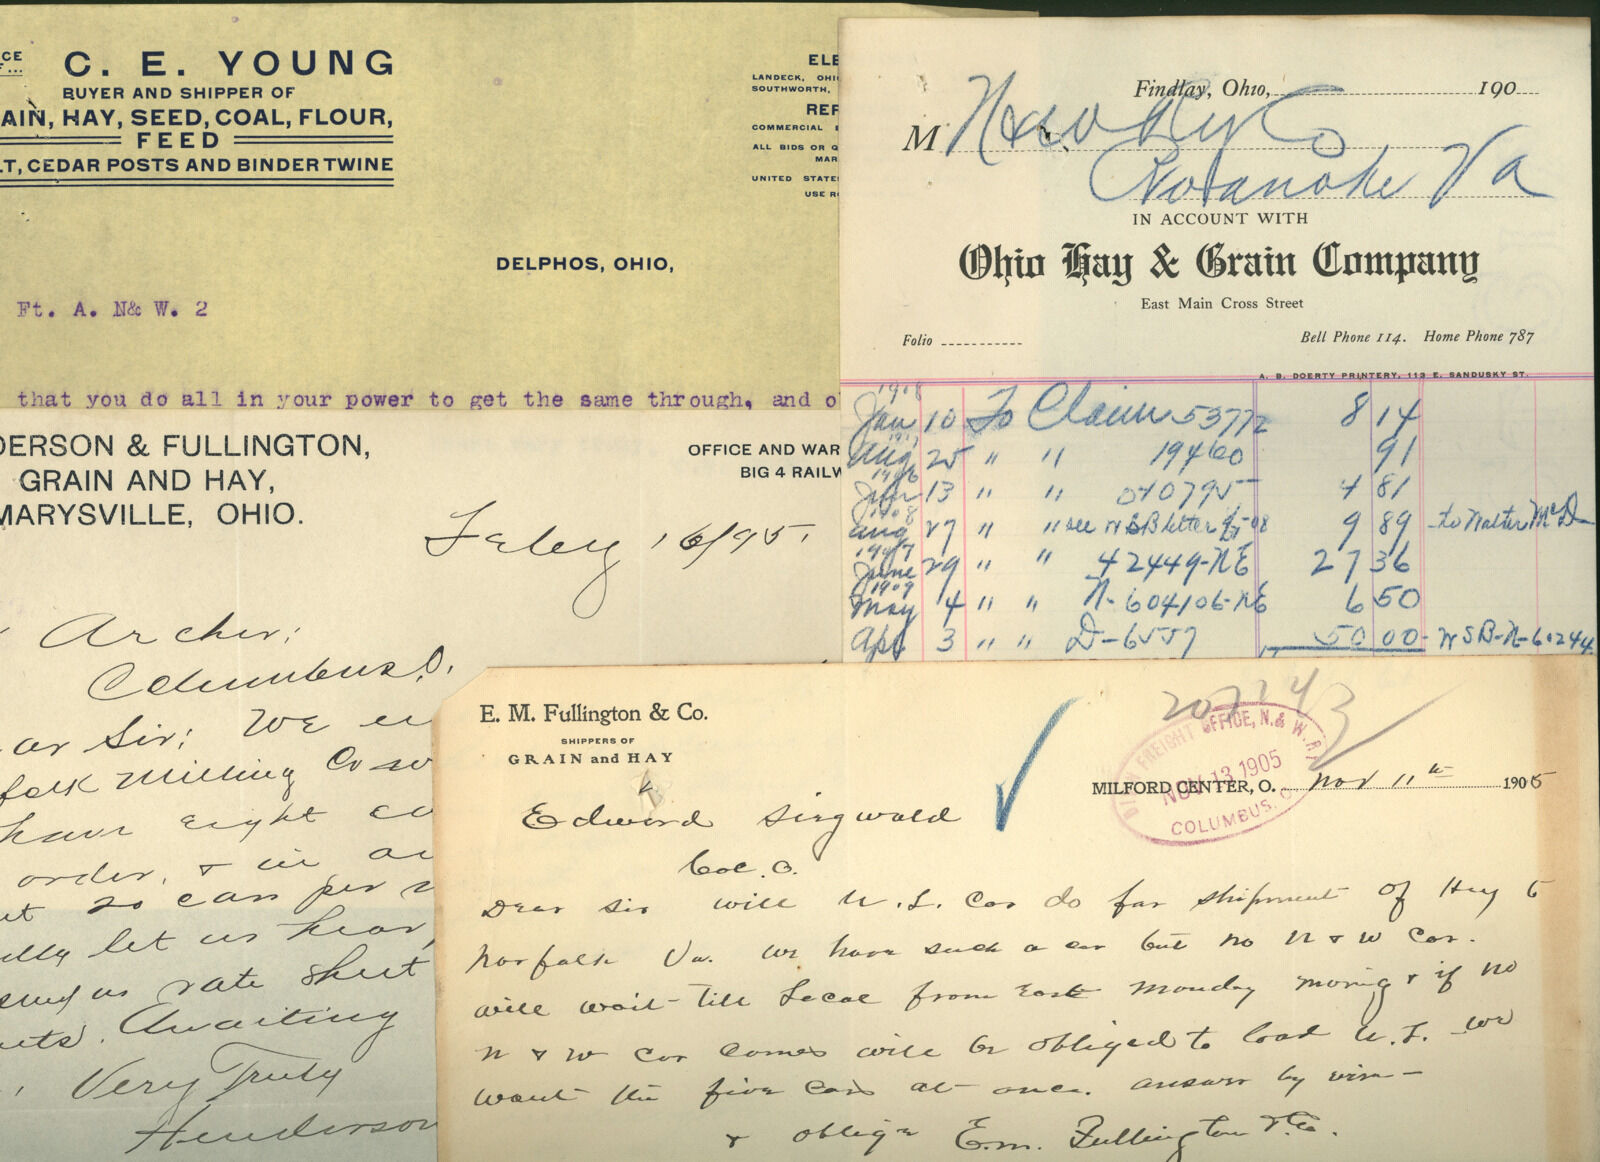 C. E. YOUNG
BUYER AND SHIPPER OF
AIN, HAY, SEED, COAL, FLOUR,
FEED
LT, CEDAR POSTS AND BINDER TWINE
ELE
LANDECK, OHI
SOUTHWORTH,
REF
COMMERCIAL
ALL BIDS OR Q
MAR
UNITED STATE
USE RO
DELPHOS, OHIO,
Ft. A. N& W. 2
that you do all in your power to get the same through, and o
DERSON & FULLINGTON,
GRAIN AND HAY,
MARYSVILLE, OHIO.
OFFICE AND WAR
BIG 4 RAILW
Feby 16/95.
Archer:
Columbus O.
ar Sir: We en
folk Milling Co so
have eight ca
order, & in
ut 20 cars per
let us hear,
send us rate sheet
Awaiting
Very Truly
Henderson
Findlay, Ohio, 190
M N & W Ry Co
Roanoke Va
IN ACCOUNT WITH
Ohio Hay & Grain Company
East Main Cross Street
Folio
Bell Phone 114. Home Phone 787
A. B. DOERTY PRINTERY, 113 E. SANDUSKY ST.
1908
Jan 10 To Claim 53772 8 14
Aug 25 " " 19460 91
13 " " 040795 4 81
1908
Aug 27 " " see WSB letter 08 9 89 to Walter McD
1907
June 29 " " 42449-NE 27 36
1909
May 4 " " N-604106-NE 6 50
Apr 3 " " D-6557 50 00 - WSB-N-60244
E. M. Fullington & Co.
SHIPPERS OF
GRAIN and HAY
FREIGHT OFFICE, N. & W. R
NOV 13 1905
COLUMBUS, O.
MILFORD CENTER, O. Nov 11th 1905
Edward Siegwald
Col. O.
Dear Sir will N. L. Car do for shipment of Hay to
Norfolk Va. We have such a car but no N & W Car.
will wait till Local from East Monday morning & if no
N & W Car comes will be obliged to load N. L. We
want the five cars at once. answer by wire
& oblige E. M. Fullington & Co.